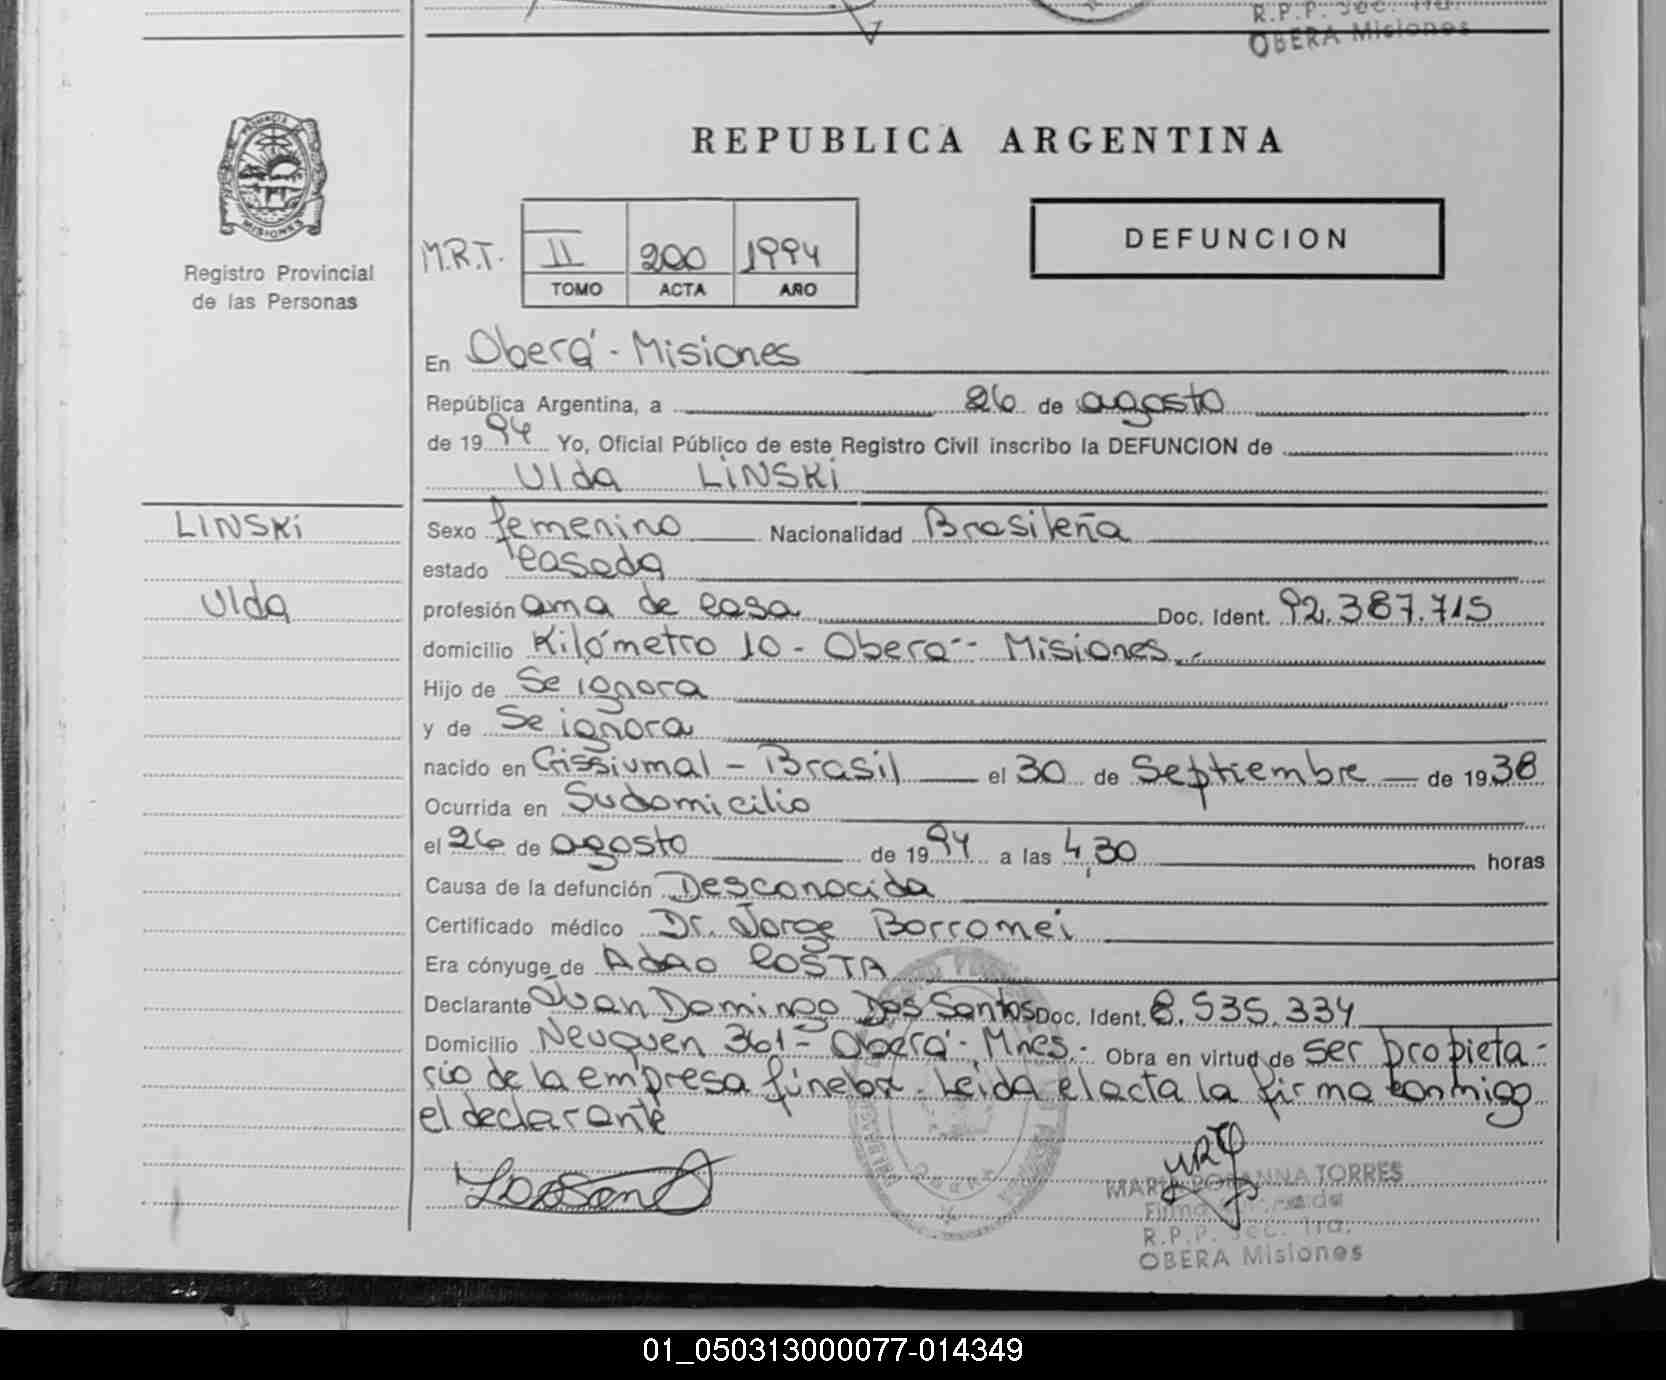 R.P.P. Sec. 1ra.
OBERA Misiones
PROVINCIA DE
MISIONES
Registro Provincial
de las Personas
REPUBLICA ARGENTINA
M.R.T. II 200 1994
TOMO ACTA AÑO
DEFUNCION
En Oberá - Misiones
República Argentina, a 26 de agosto
de 1994 Yo, Oficial Público de este Registro Civil inscribo la DEFUNCION de
Ulda LINSKi
LINSKi
Ulda
Sexo femenino Nacionalidad Brasileña
estado casada
profesión ama de casa Doc. Ident. 92.387.715
domicilio Kilómetro 10 - Oberá - Misiones.-
Hijo de Se ignora
y de Se ignora
nacido en Crissiumal - Brasil el 30 de Septiembre de 1938
Ocurrida en Su domicilio
el 26 de agosto de 1994 a las 4,30 horas
Causa de la defunción Desconocida
Certificado médico Dr. Jorge Borromei
Era cónyuge de ADAO COSTA
Declarante Juan Domingo Dos Santos Doc. Ident. 8.535.334
Domicilio Neuquen 361 - Oberá - Mnes.- Obra en virtud de ser propieta-
rio de la empresa fúnebre. Leida el acta la firma conmigo
el declarante
MARIA ROSANNA TORRES
R.P.P. Sec. 1ra.
OBERA Misiones
01_050313000077-014349